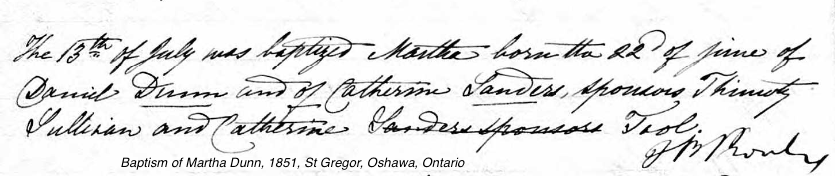 The 13th of July was baptized Martha born tha 22d of june of
Daniel Dunn and of Catherine Sanders, sponsors Thimoty
Sullivan and Catherine Sanders sponsors Tool.
J B
Baptism of Martha Dunn, 1851, St Gregor, Oshawa, Ontario